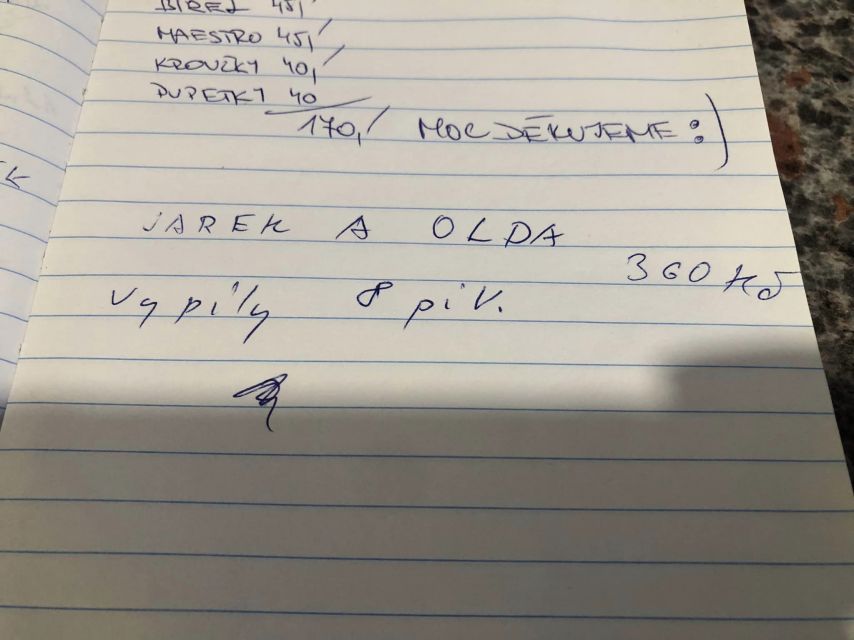 BIRELL 45,/
MAESTRO 45,/
KROUŽKY 40,/
DUPETKY 40
170,/ MOC DĚKUJEME :)
JAREK A OLDA
360 Kč
vypily 8 piv.